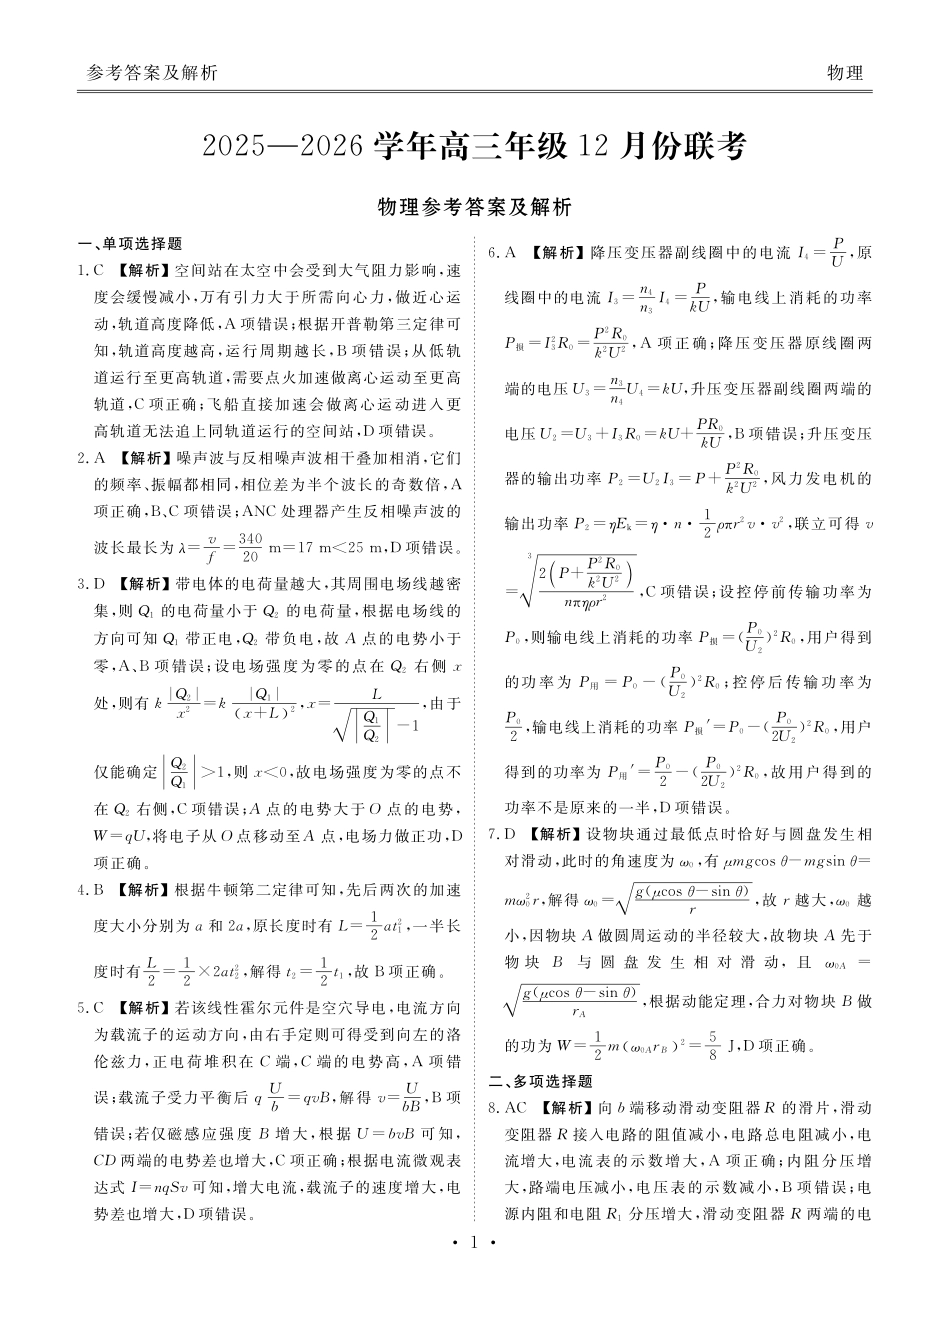 参考答案及解析
物理
2025—2026 学年高三年级 12 月份联考
物理参考答案及解析
一、单项选择题
1. C 【解析】空间站在太空中会受到大气阻力影响,速
度会缓慢减小,万有引力大于所需向心力,做近心运
动,轨道高度降低,A 项错误;根据开普勒第三定律可
知,轨道高度越高,运行周期越长,B 项错误;从低轨
道运行至更高轨道,需要点火加速做离心运动至更高
轨道,C 项正确;飞船直接加速会做离心运动进入更
高轨道无法追上同轨道运行的空间站,D 项错误。
2. A 【解析】噪声波与反相噪声波相干叠加相消,它们
的频率、振幅都相同,相位差为半个波长的奇数倍,A
项正确,B、C 项错误;ANC 处理器产生反相噪声波的
波长最长为 λ=v/f=340/20 m=17 m<25 m,D 项错误。
3. D 【解析】带电体的电荷量越大,其周围电场线越密
集,则 Q₁ 的电荷量小于 Q₂ 的电荷量,根据电场线的
方向可知 Q₁ 带正电,Q₂ 带负电,故 A 点的电势小于
零,A、B 项错误;设电场强度为零的点在 Q₂ 右侧 x
处,则有 k|Q₂|/x²=k|Q₁|/(x+L)²,x=L/(√|Q₁/Q₂|−1),由于
仅能确定|Q₂/Q₁|>1,则 x<0,故电场强度为零的点不
在 Q₂ 右侧,C 项错误;A 点的电势大于 O 点的电势,
W=qU,将电子从 O 点移动至 A 点,电场力做正功,D
项正确。
4. B 【解析】根据牛顿第二定律可知,先后两次的加速
度大小分别为 a 和 2a,原长度时有 L=1/2 at₁²,一半长
度时有 L/2=1/2×2at₂²,解得 t₂=1/2 t₁,故 B 项正确。
5. C 【解析】若该线性霍尔元件是空穴导电,电流方向
为载流子的运动方向,由右手定则可得受到向左的洛
伦兹力,正电荷堆积在 C 端,C 端的电势高,A 项错
误;载流子受力平衡后 q U/b=qvB,解得 v=U/bB,B 项
错误;若仅磁感应强度 B 增大,根据 U=bvB 可知,
CD 两端的电势差也增大,C 项正确;根据电流微观表
达式 I=nqSv 可知,增大电流,载流子的速度增大,电
势差也增大,D 项错误。
6. A 【解析】降压变压器副线圈中的电流 I₄=P/U,原
线圈中的电流 I₃=n₄/n₃ I₄=P/kU,输电线上消耗的功率
P损=I₃²R₀=P²R₀/k²U²,A 项正确;降压变压器原线圈两
端的电压 U₃=n₃/n₄ U₄=kU,升压变压器副线圈两端的
电压 U₂=U₃+I₃R₀=kU+PR₀/kU,B 项错误;升压变压
器的输出功率 P₂=U₂I₃=P+P²R₀/k²U²,风力发电机的
输出功率 P₂=ηEₖ=η·n·1/2 ρπr²v·v²,联立可得 v
=∛(2(P+P²R₀/k²U²)/nπηρr²),C 项错误;设控停前传输功率为
P₀,则输电线上消耗的功率 P损=(P₀/U₂)²R₀,用户得到
的功率为 P用=P₀−(P₀/U₂)²R₀;控停后传输功率为
P₀/2,输电线上消耗的功率 P损′=P₀−(P₀/2U₂)²R₀,用户
得到的功率为 P用′=P₀/2−(P₀/2U₂)²R₀,故用户得到的
功率不是原来的一半,D 项错误。
7. D 【解析】设物块通过最低点时恰好与圆盘发生相
对滑动,此时的角速度为 ω₀,有 μmgcos θ−mgsin θ=
mω₀²r,解得 ω₀=√(g(μcos θ−sin θ)/r),故 r 越大,ω₀ 越
小,因物块 A 做圆周运动的半径较大,故物块 A 先于
物块 B 与圆盘发生相对滑动,且 ω₀A=
√(g(μcos θ−sin θ)/rA),根据动能定理,合力对物块 B 做
的功为 W=1/2 m(ω₀ArB)²=5/8 J,D 项正确。
二、多项选择题
8. AC 【解析】向 b 端移动滑动变阻器 R 的滑片,滑动
变阻器 R 接入电路的阻值减小,电路总电阻减小,电
流增大,电流表的示数增大,A 项正确;内阻分压增
大,路端电压减小,电压表的示数减小,B 项错误;电
源内阻和电阻 R₁ 分压增大,滑动变阻器 R 两端的电
· 1 ·